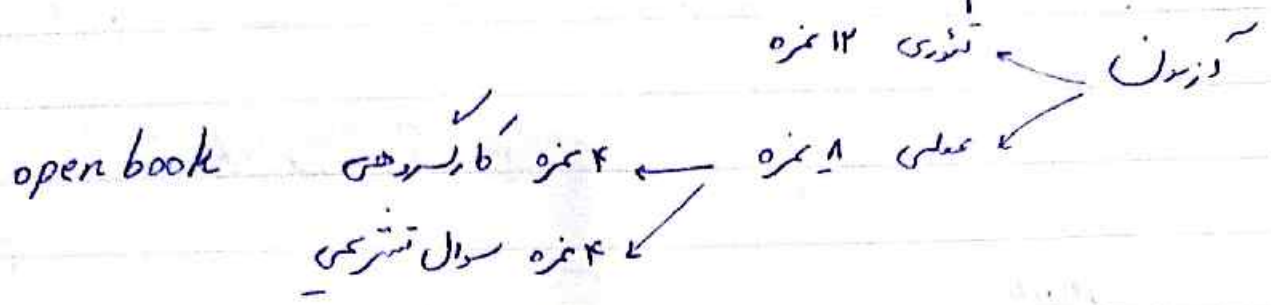 آزمون تئوری ۱۲ نمره
عملی ۸ نمره ۴ نمره کارگروهی open book
۴ نمره سوال تشریحی